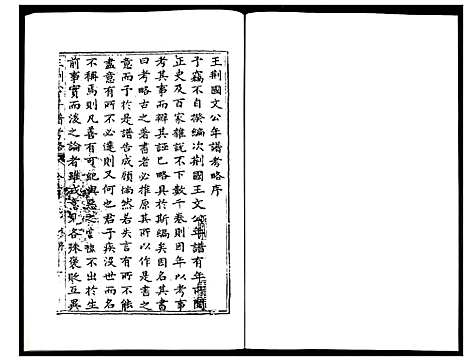 王荊國文公年譜考略序
予竊不自揆編次荊國王文公年譜有年所閱
正史及百家雜說不下數千卷則因年以考事
考其事而辨其誣已略具於斯編矣因名其書
曰考略古之著書者必推原其所以作是書之
意而予於是譜告成顧偽然若失言有所不能
盡意有所不必達則又何也君子疾沒世而名
不稱焉則凡善有可紀與惡之當褫不出於生
前事實而後之論者雖或意見各殊褒貶互異